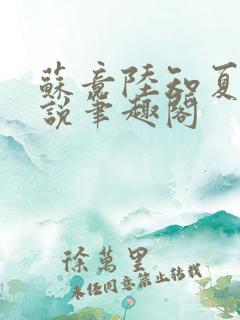 蘇意陸知夏
說筆趣閣
徐萬里
未經同意禁止轉載